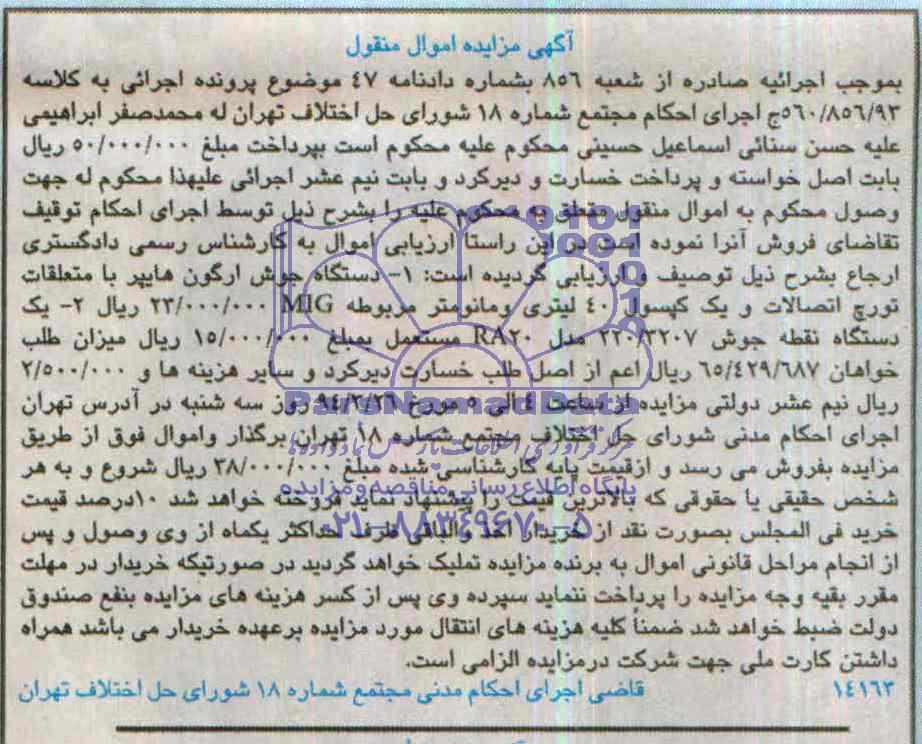 آگهی مزایده اموال منقول
بموجب اجرائیه صادره از شعبه ۸۵۶ بشماره دادنامه ۴۷ موضوع پرونده اجرائی به کلاسه
۵۶۰/۸۵۶/۹۳ج اجرای احکام مجتمع شماره ۱۸ شورای حل اختلاف تهران له محمدصفر ابراهیمی
علیه حسن سنائی اسماعیل حسینی محکوم علیه محکوم است بپرداخت مبلغ ۵۰/۰۰۰/۰۰۰ ریال
بابت اصل خواسته و پرداخت خسارت و دیرکرد و بابت نیم عشر اجرائی علیهذا محکوم له جهت
وصول محکوم به اموال منقول متعلق به محکوم علیه را بشرح ذیل توسط اجرای احکام توقیف
تقاضای فروش آنرا نموده است در این راستا ارزیابی اموال به کارشناس رسمی دادگستری
ارجاع بشرح ذیل توصیف و ارزیابی گردیده است: ۱- دستگاه جوش ارگون هایپر با متعلقات
تورچ اتصالات و یک کپسول ۴۰ لیتری ومانومتر مربوطه MIG ۲۳/۰۰۰/۰۰۰ ریال ۲- یک
دستگاه نقطه جوش ۲۲۰/۳۲۰۷ مدل RA۲۰ مستعمل بمبلغ ۱۵/۰۰۰/۰۰۰ ریال میزان طلب
خواهان ۶۵/۴۲۹/۶۸۷ ریال اعم از اصل طلب خسارت دیرکرد و سایر هزینه ها و ۲/۵۰۰/۰۰۰
ریال نیم عشر دولتی مزایده از ساعت ٤ الی ۵ مورخ ۹۴/۳/۲۶ روز سه شنبه در آدرس تهران
اجرای احکام مدنی شورای حل اختلاف مجتمع شماره ۱۸ تهران برگذار واموال فوق از طریق
مزایده بفروش می رسد و ازقیمت پایه کارشناسی شده مبلغ ۳۸/۰۰۰/۰۰۰ ریال شروع و به هر
شخص حقیقی یا حقوقی که بالاترین قیمت را پیشنهاد نماید فروخته خواهد شد ۱۰درصد قیمت
خرید فی المجلس بصورت نقد از خریدار اخذ والباقی ظرف حداکثر یکماه از وی وصول و پس
از انجام مراحل قانونی اموال به برنده مزایده تملیک خواهد گردید در صورتیکه خریدار در مهلت
مقرر بقیه وجه مزایده را پرداخت ننماید سپرده وی پس از کسر هزینه های مزایده بنفع صندوق
دولت ضبط خواهد شد ضمناً کلیه هزینه های انتقال مورد مزایده برعهده خریدار می باشد همراه
داشتن کارت ملی جهت شرکت درمزایده الزامی است.
۱۴۱۶۳ قاضی اجرای احکام مدنی مجتمع شماره ۱۸ شورای حل اختلاف تهران
ParsNamadData
مرکز فرآوری اطلاعات پارس نماد داده ها
پایگاه اطلاع رسانی مناقصه و مزایده
۰۲۱-۸۸۳۴۹۶۷۰-۵